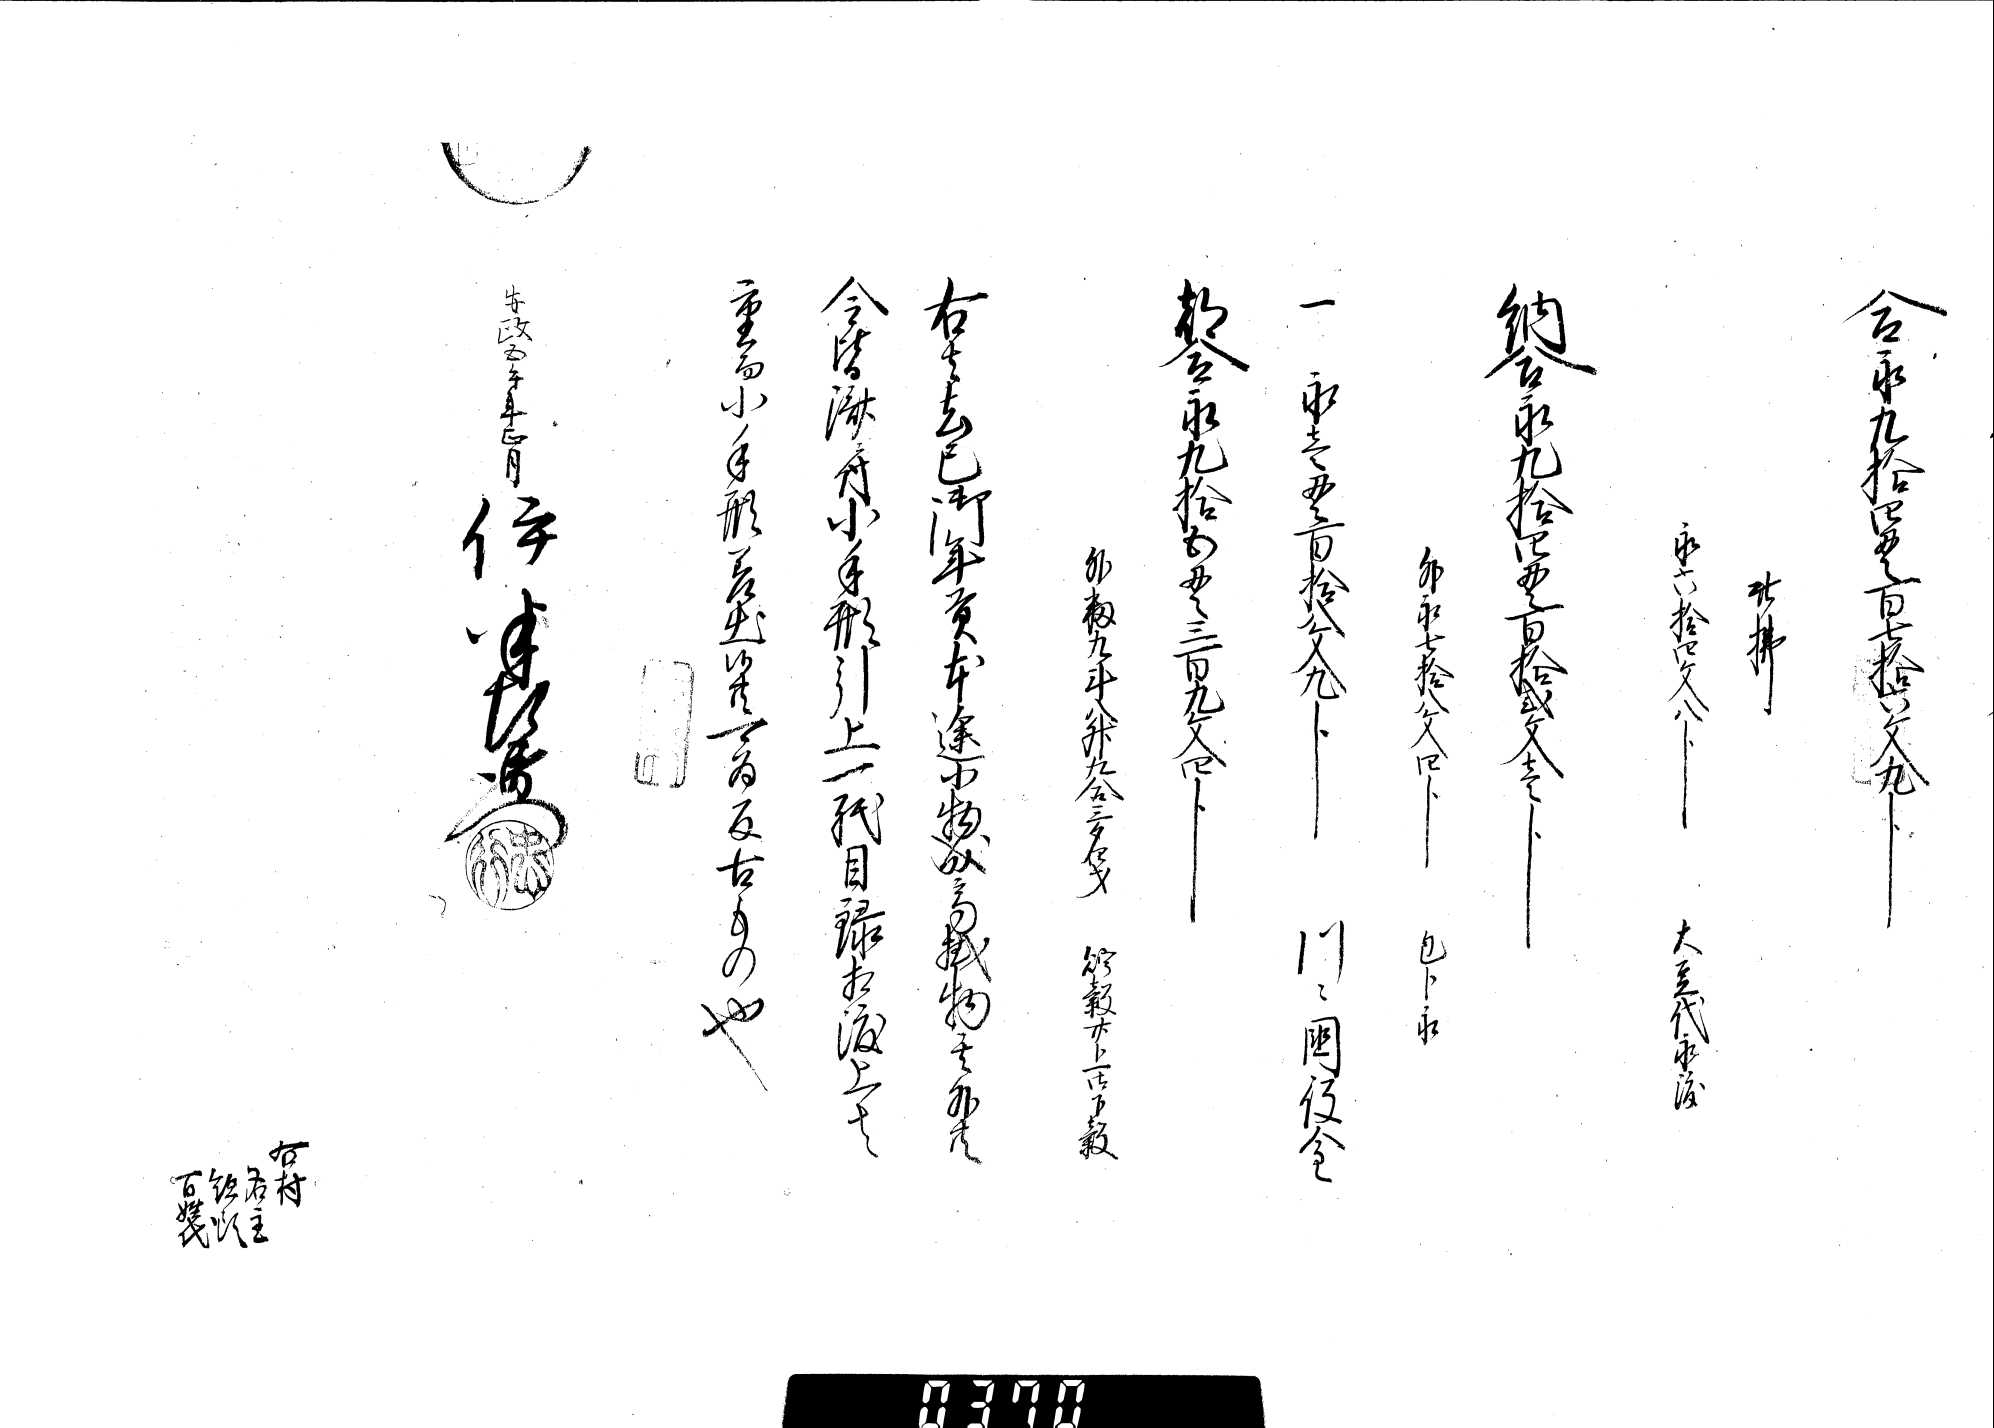 合永九拾四貫百七拾六文九分
此拂
永六拾四文八分 大豆代永渡
納合永九拾四貫百拾弐文壱分
外永七拾八文四分 包分永
一 永壱貫百拾八文九分 川々国役金
都合永九拾五貫三百九文四分
外籾九斗八升九合三夕 貯穀 下ケ穀
右者去巳御年貢本途小物成高掛物其外共
令皆済ニ付小手形引上一紙目録相渡上者
重而小手形差出候共可為反古もの也
安政五午年正月 伊 半左衛門
右村
名主
組頭
百姓代
0370